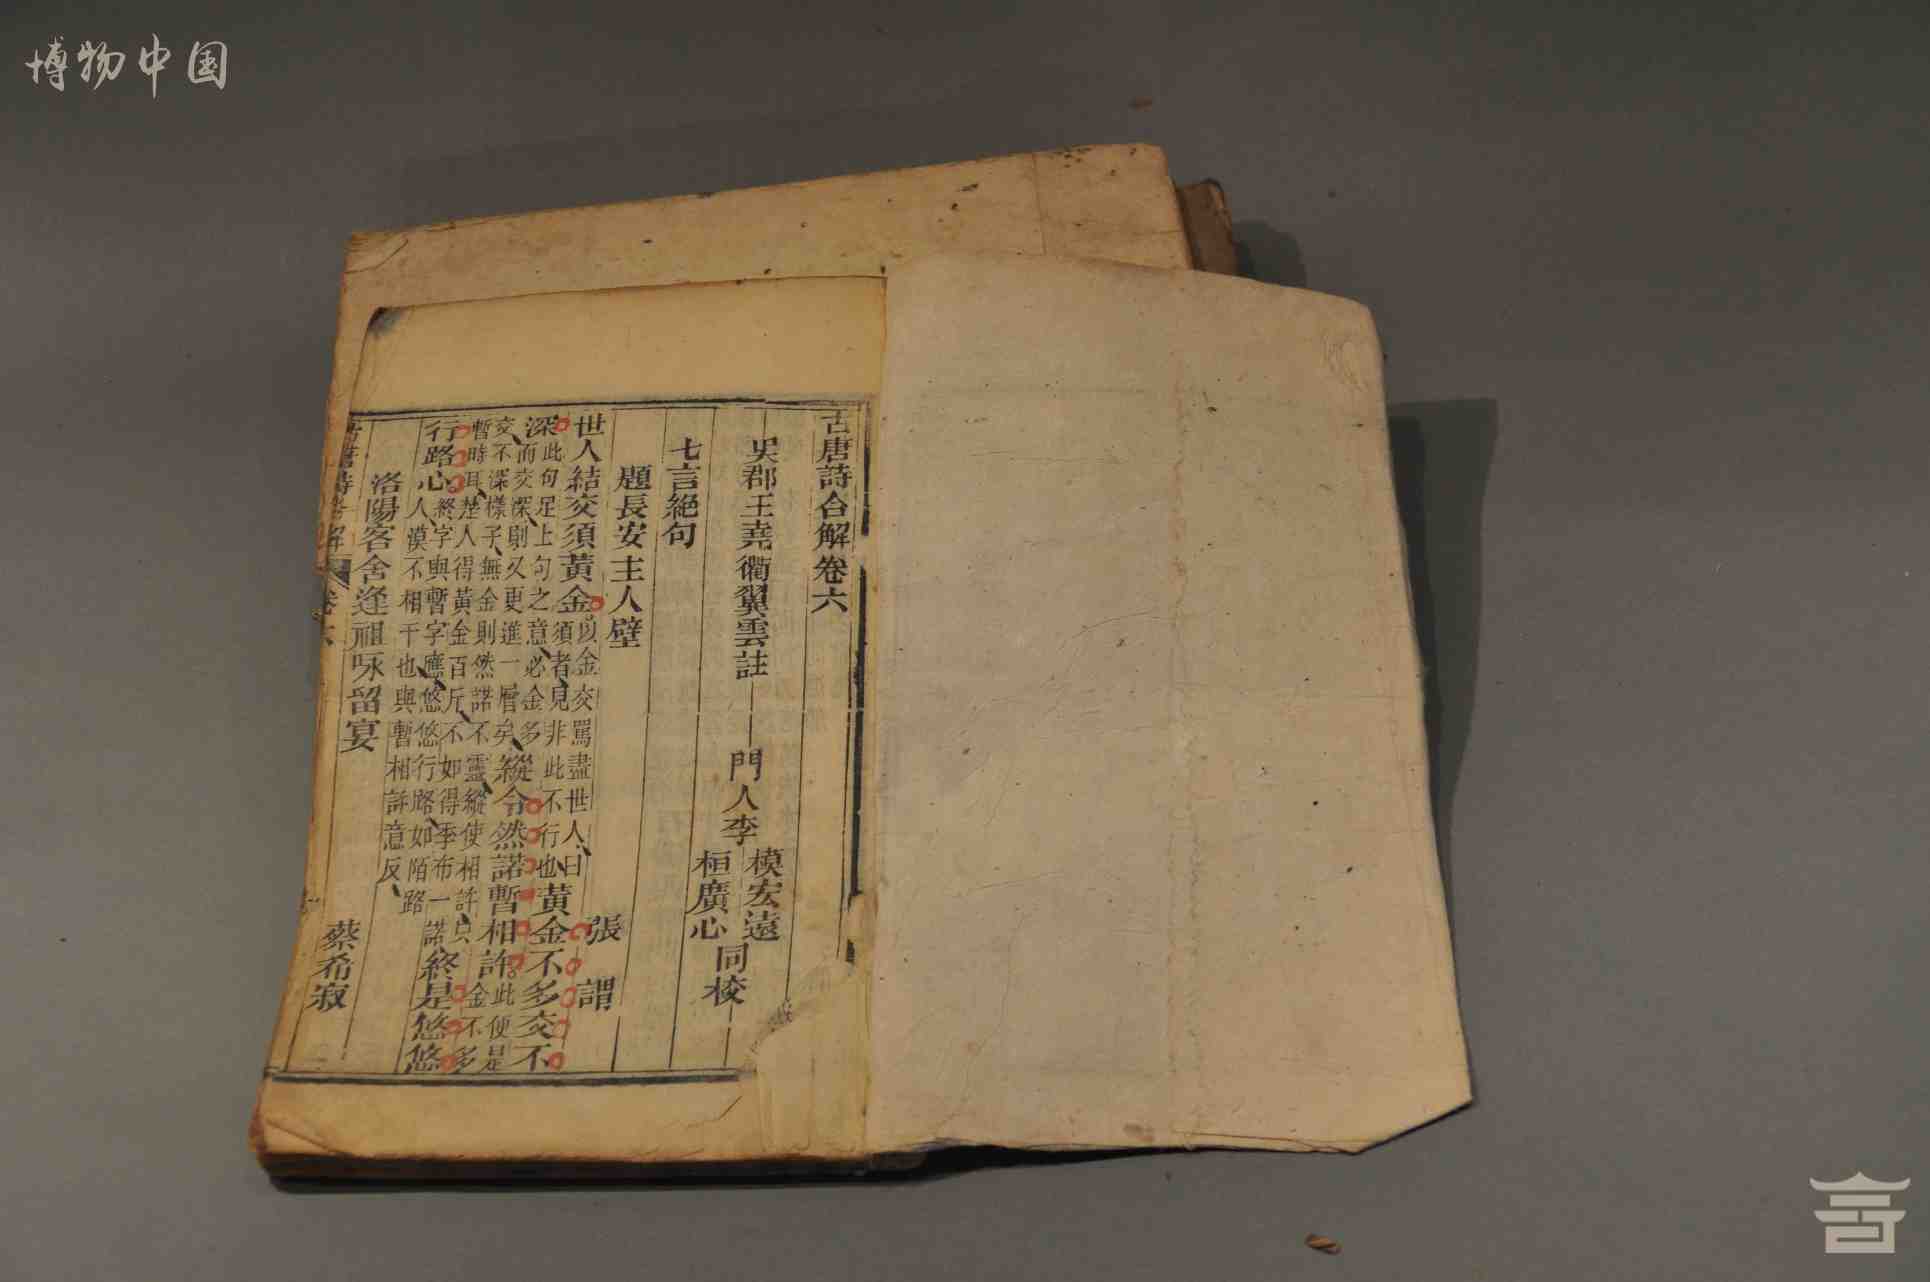 博物中国
古唐詩合解卷六
吳郡王堯衢翼雲註
門人李
模宏遠
桓廣心
同校
七言絶句
題長安主人壁 張 謂
世人結交須黃金
以金交罵盡世人曰
須者見非此不行也
黃金不多交不
深
此句足上句之意必金多
而交深則又更進一層矣
縱令然諾暫相許
此便是
金不多
交不深樣子無金則然諾不靈縱使相許只
暫時耳楚人得黃金百斤不如得季布一諾
終是悠悠
行路心
終字與暫字應悠悠行路如陌路
人漠不相干也與暫相許意反
洛陽客舍逢祖咏留宴 蔡希寂
古唐詩合解 卷六